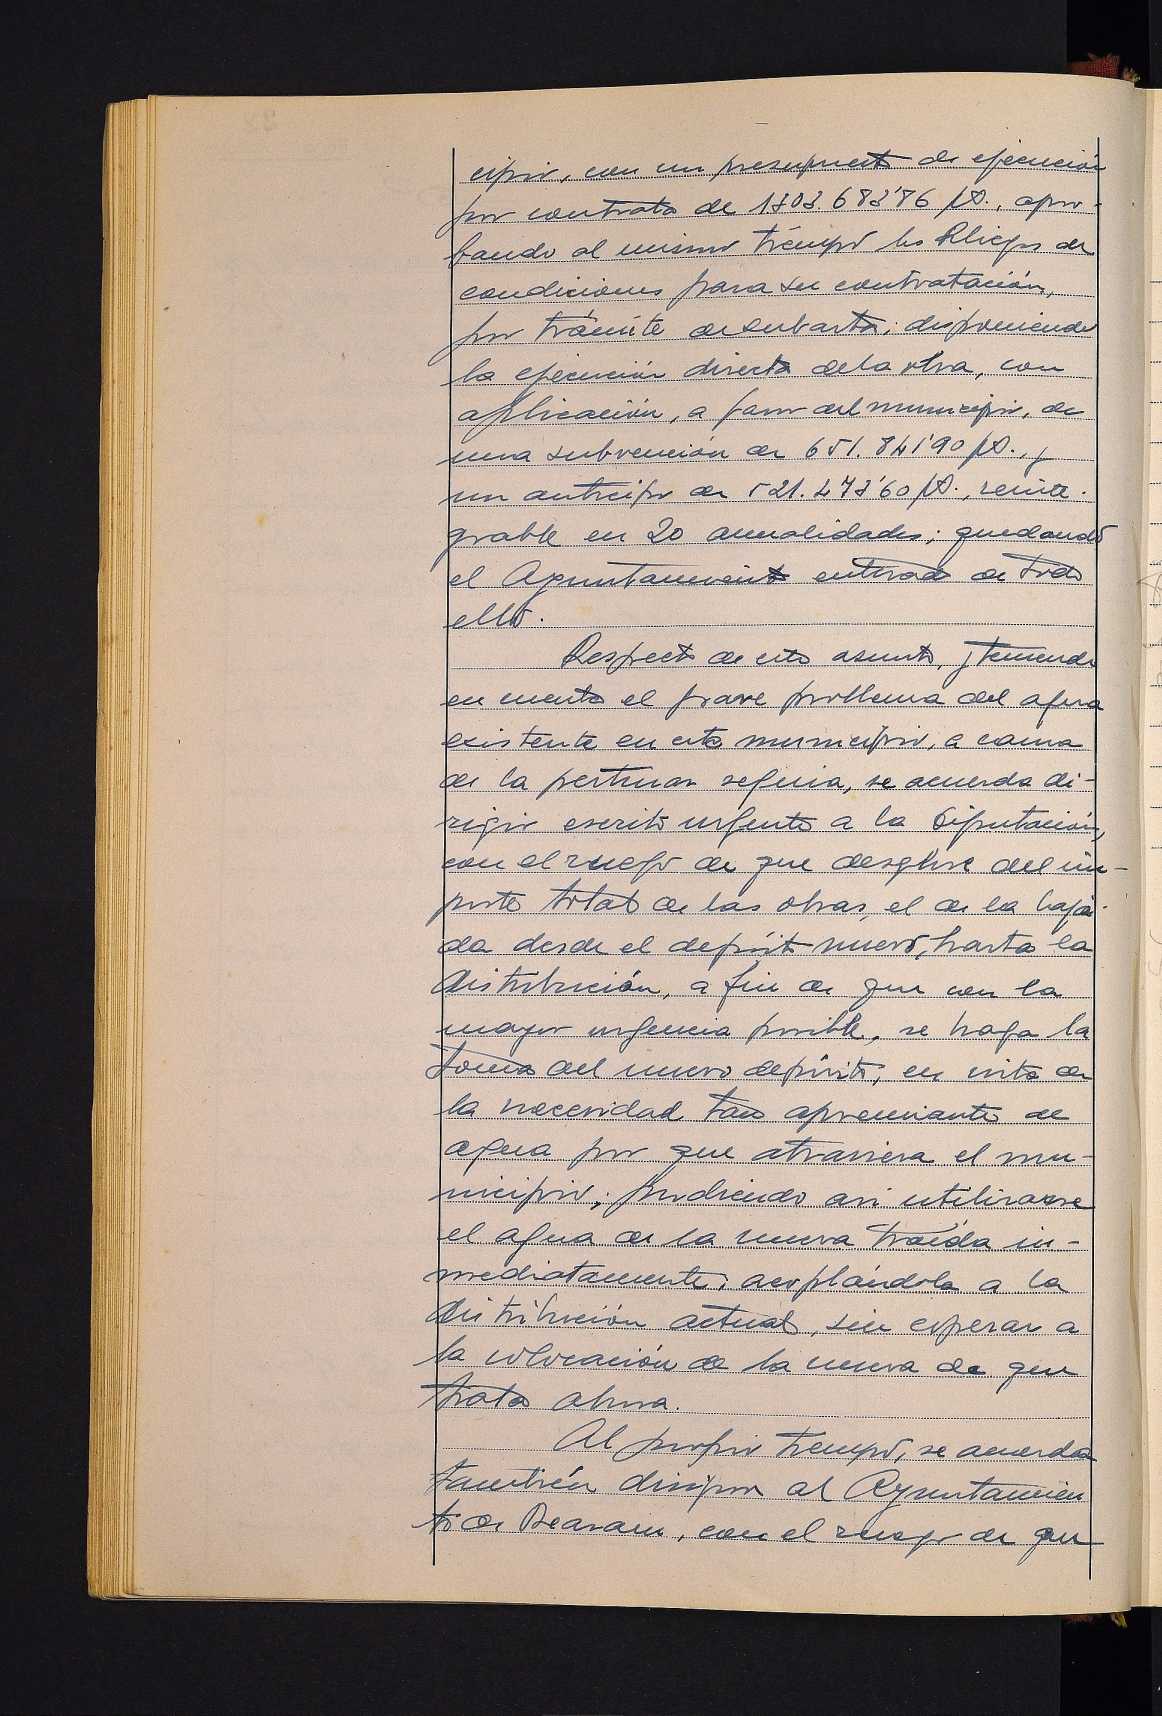 cipio, con un presupuesto de ejecución
por contrata de 1303.683'86 pts., apro-
bando al mismo tiempo los Pliegos de
condiciones para su contratación,
por trámite de subasta; disponiendo
la ejecución directa de la obra, con
aplicación, a favor del municipio, de
una subvención de 651.841'90 pts., y
un anticipo de 521.473'60 pts., reinte-
grable en 20 anualidades; quedando
el Ayuntamiento enterado de todo
ello.
Respecto de este asunto, y teniendo
en cuenta el grave problema del agua
existente en este municipio, a causa
de la pertinaz sequia, se acuerda di-
rigir escrito urgente a la Diputación,
con el ruego de que desglose del im-
porte total de las obras, el de la baja-
da desde el depósito nuevo, hasta la
distribución, a fin de que con la
mayor urgencia posible, se haga la
toma del nuevo depósito, en vista de
la necesidad tan apremiante de
agua por que atraviesa el mu-
nicipio; pudiendo asi utilizarse
el agua de la nueva traída in-
mediatamente, acoplándola a la
distribución actual, sin esperar a
la colocación de la nueva de que
trata ahora.
Al propio tiempo, se acuerda
también dirigirse al Ayuntamien
to de Beasain, con el ruego de que